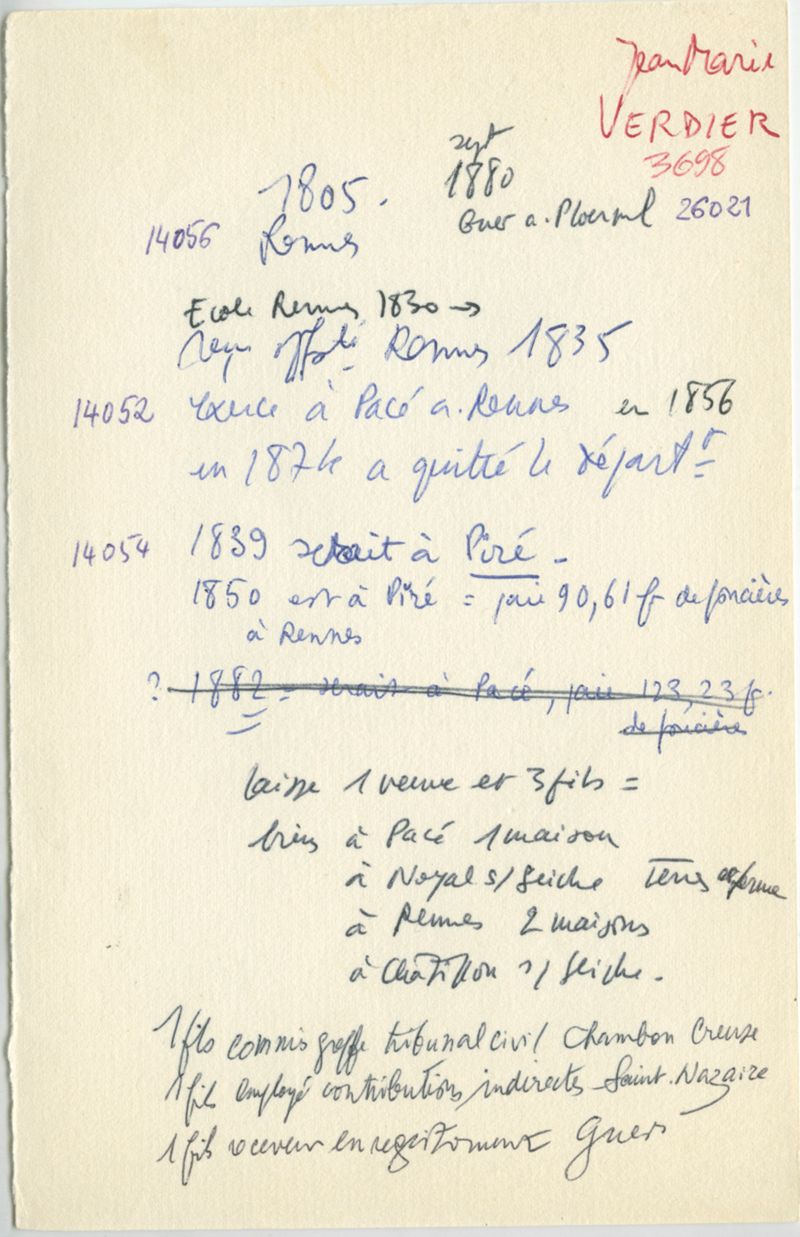 Jean Marie
VERDIER
3698
1805.
sept
1880
14056 Rennes
Guer a. Ploermel 26021
Ecole Rennes 1830 →
reçu offté Rennes 1835
14052 exerce à Pacé a. Rennes en 1856
en 1874 a quitté le départt
14054 1839 serait à Piré -
1850 est à Piré = paie 90,61 fr de foncières
à Rennes
? 1882 = serait à Pacé, paie 123,23 f.
de foncières
laisse 1 veuve et 3 fils =
biens à Pacé 1 maison
à Noyal s/ Seiche Terres et ferme
à Rennes 2 maisons
à Châtillon s/ Seiche.
1 fils commis greffe tribunal civil Chambon Creuse
1 fils employé contributions indirectes Saint.Nazaire
1 fils receveur enregistrement Guer